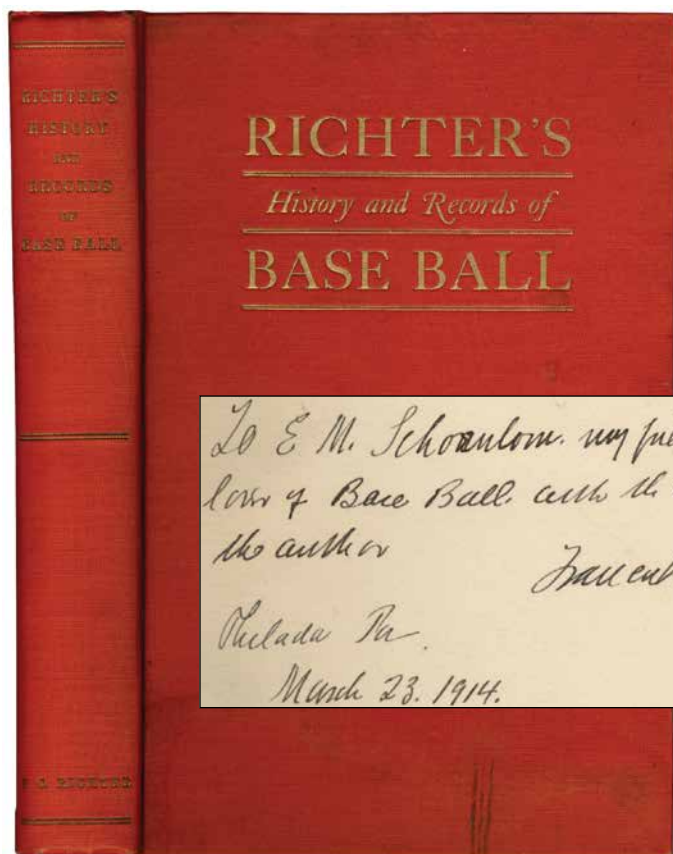 RICHTER'S
HISTORY
AND
RECORDS
OF
BASE BALL
F. C. RICHTER
RICHTER'S
History and Records of
BASE BALL
To E. M. my
lover of Base Ball with the
the author
Philada Pa.
March 23. 1914.